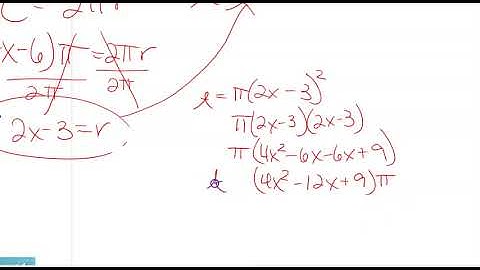 C = 2πr
x-6)π = 2πr
2π 2π
2x-3=r
= π(2x-3)²
π(2x-3)(2x-3)
π(4x²-6x-6x+9)
(4x²-12x+9)π